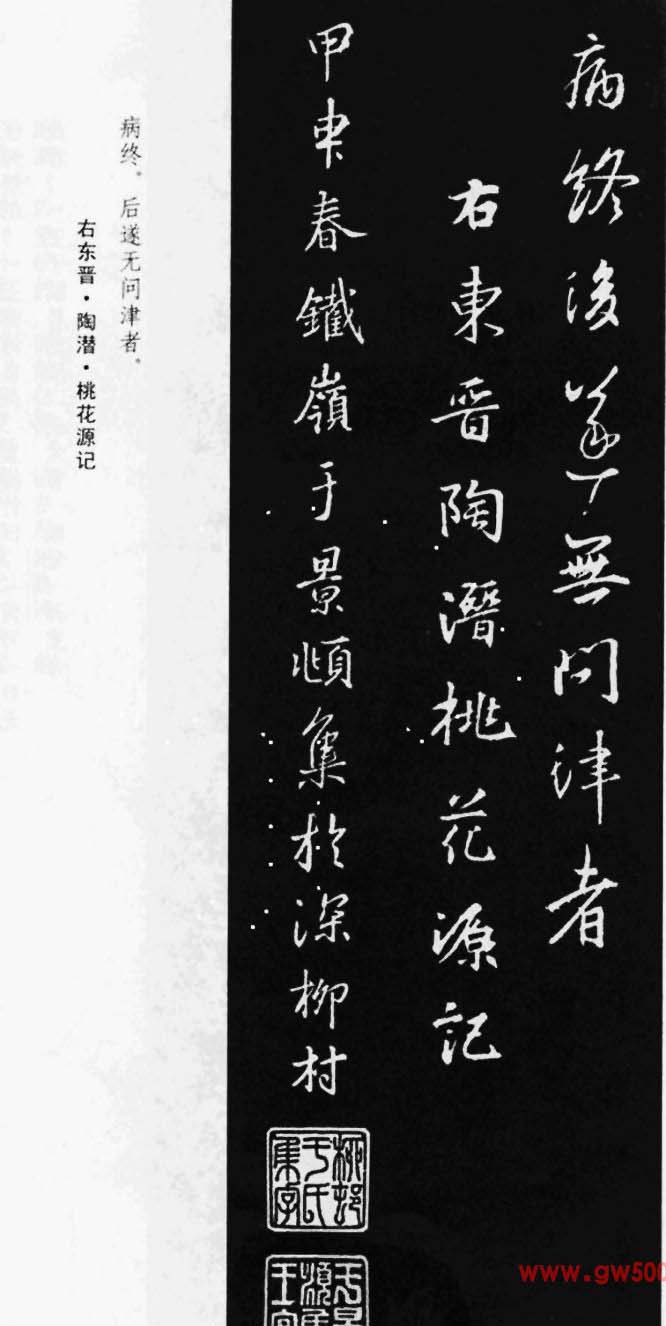 病終後遂無問津者
右東晋陶潛桃花源記
甲申春鐵嶺于景頫集於深柳村
柳邨于氏集字
病终。后遂无问津者。
右东晋·陶潜·桃花源记
www.gw500